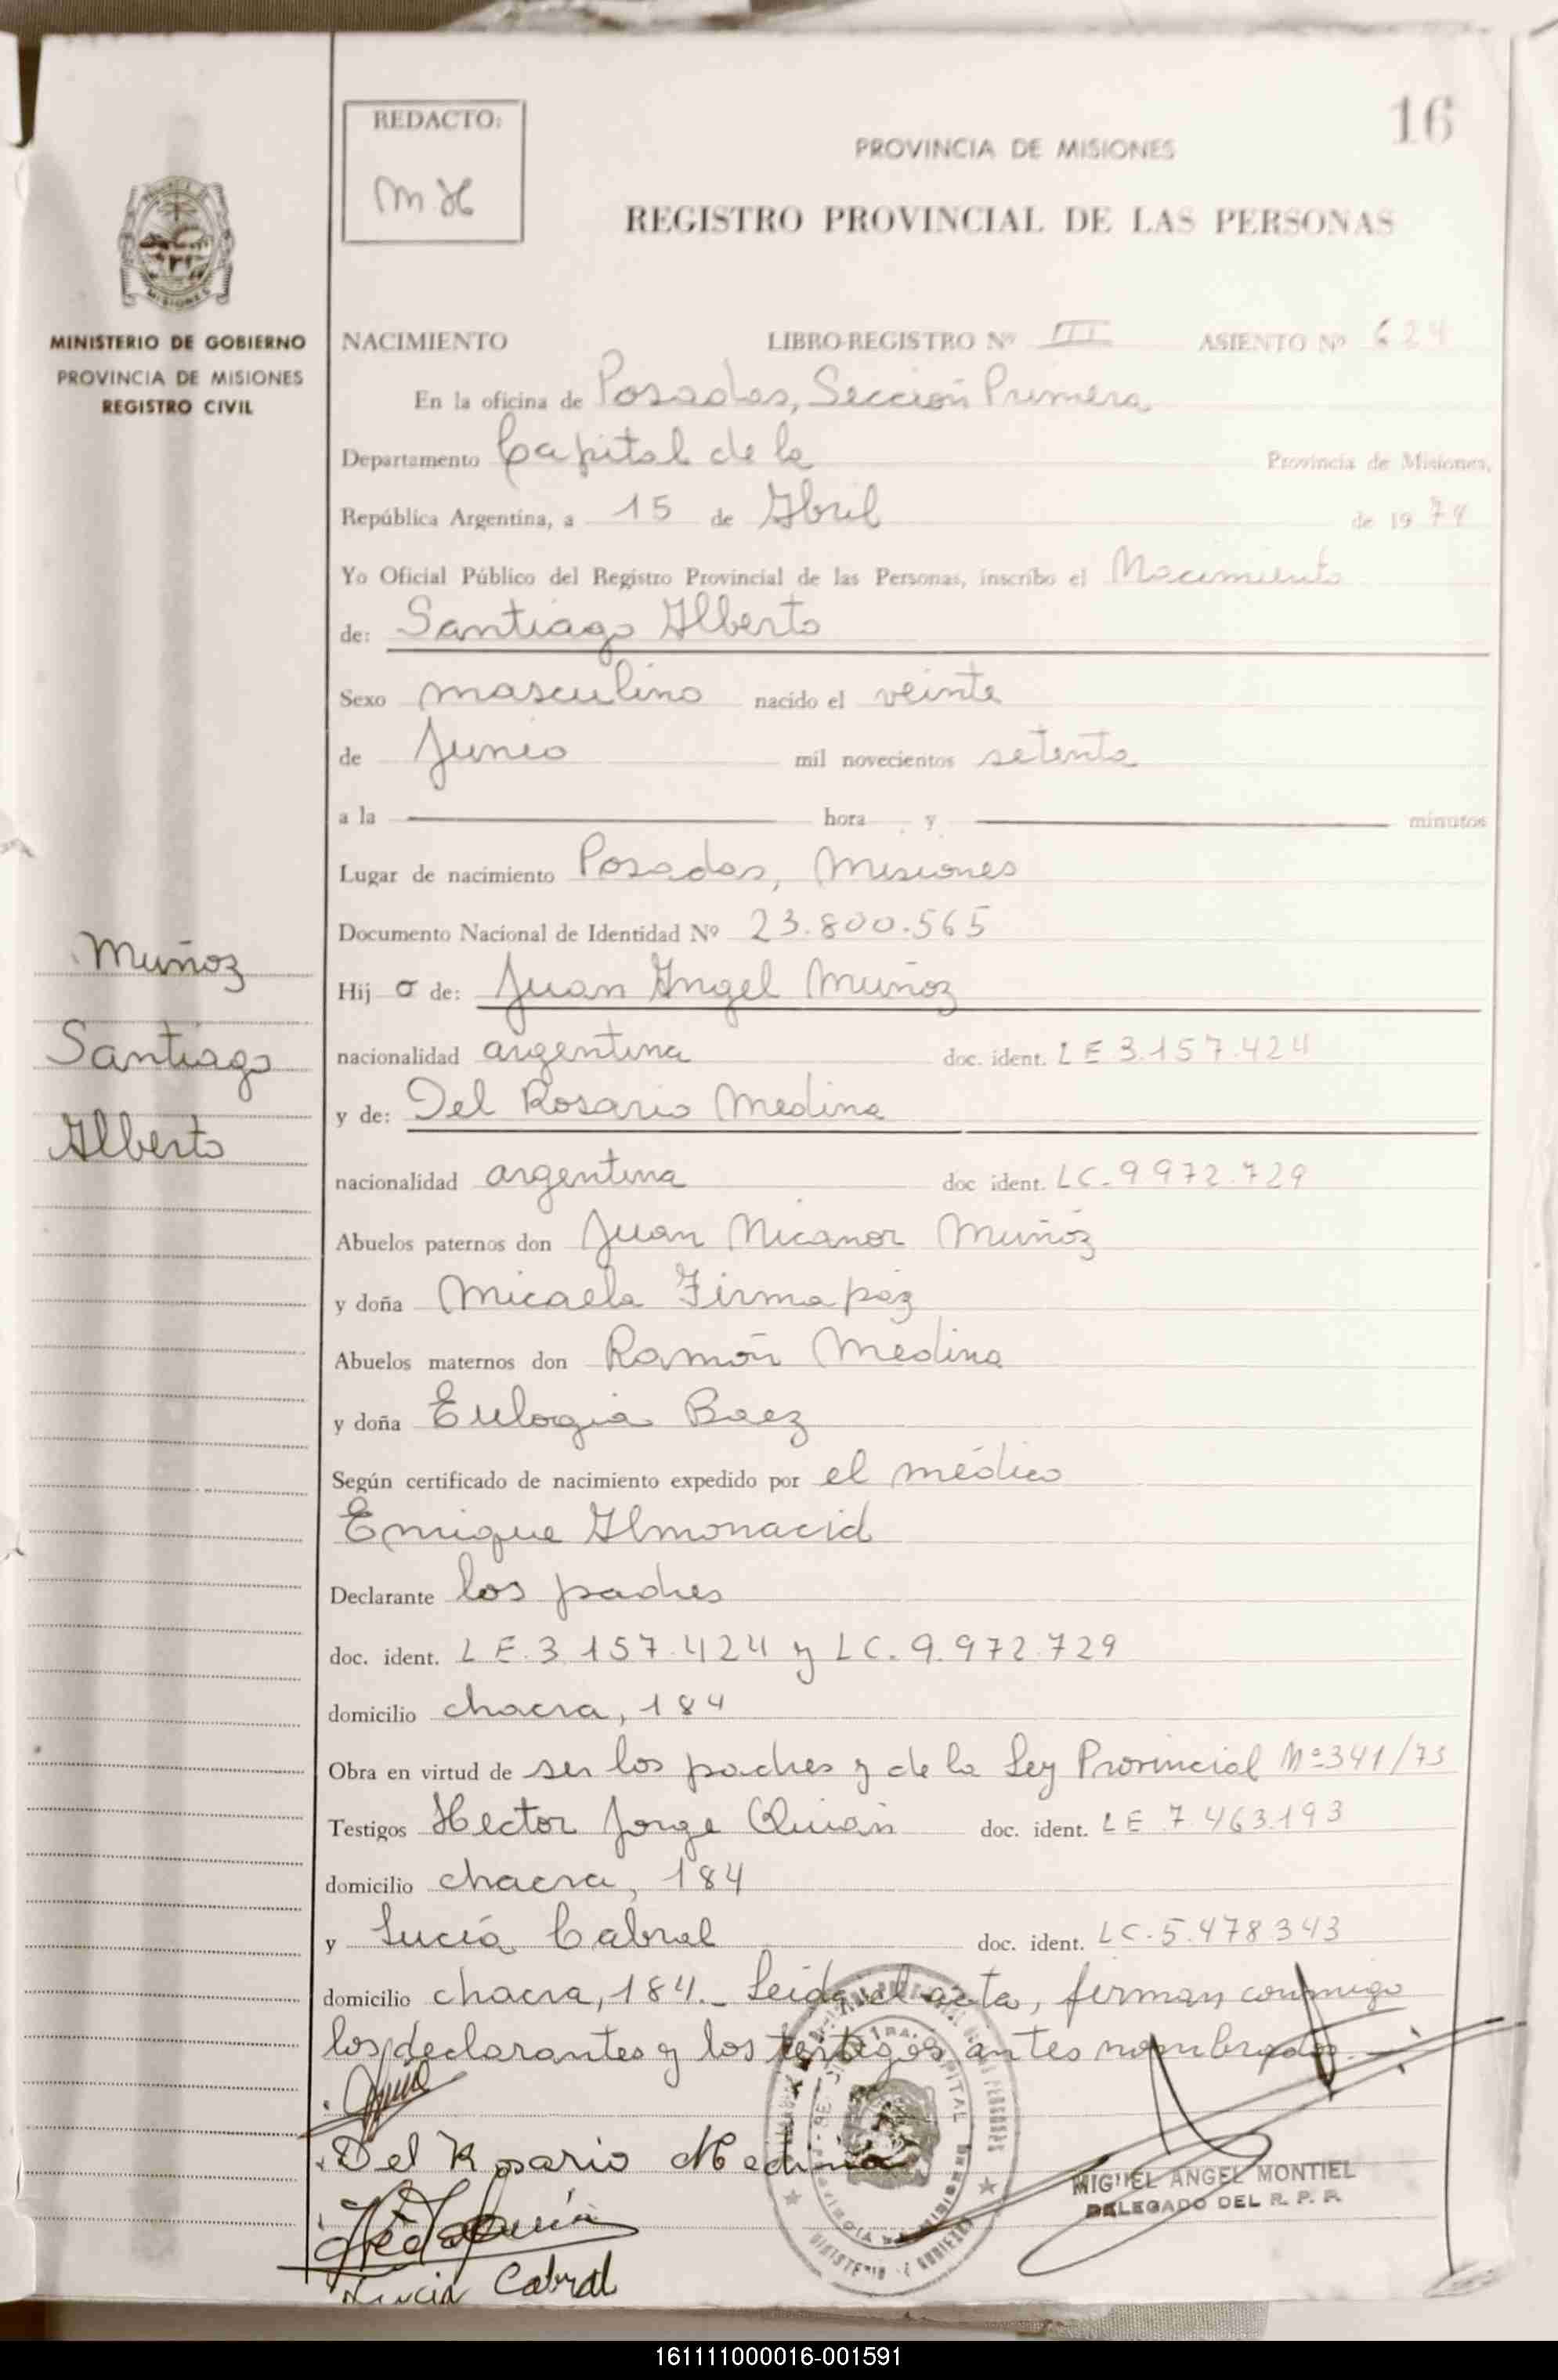 16
REDACTO:
PROVINCIA DE MISIONES
REGISTRO PROVINCIAL DE LAS PERSONAS
MISIONES
MINISTERIO DE GOBIERNO
PROVINCIA DE MISIONES
REGISTRO CIVIL
NACIMIENTO LIBRO-REGISTRO Nº III ASIENTO Nº 624
En la oficina de Posadas, Sección Primera
Departamento Capital de la Provincia de Misiones,
República Argentina, a 15 de Abril de 1974
Yo Oficial Público del Registro Provincial de las Personas, inscribo el Nacimiento
de: Santiago Alberto
Sexo masculino nacido el veinte
de Junio mil novecientos setenta
a la hora y minutos
Lugar de nacimiento Posadas, Misiones
Documento Nacional de Identidad Nº 23.800.565
Muñoz
Santiago
Alberto
Hij o de: Juan Angel Muñoz
nacionalidad argentina doc. ident. LE 3.157.424
y de: Del Rosario Medina
nacionalidad argentina doc ident. LC. 9972.729
Abuelos paternos don Juan Nicanor Muñoz
y doña Micaela Firmapaz
Abuelos maternos don Ramón Medina
y doña Eulogia Baez
Según certificado de nacimiento expedido por el médico
Enrique Almonacid
Declarante los padres
doc. ident. LE. 3.157.424 y LC. 9.972.729
domicilio chacra, 184
Obra en virtud de ser los padres y de la Ley Provincial Nº 341/73
Testigos Hector Jorge doc. ident. LE 7.463.193
domicilio chacra, 184
y Lucía Cabral doc. ident. LC. 5.478.343
domicilio chacra, 184.- Leida el acta, firman conmigo
los declarantes y los testigos antes nombrados.-
Del Rosario Medina
MIGUEL ANGEL MONTIEL
DELEGADO DEL R. P. P.
Lucia Cabral
161111000016-001591